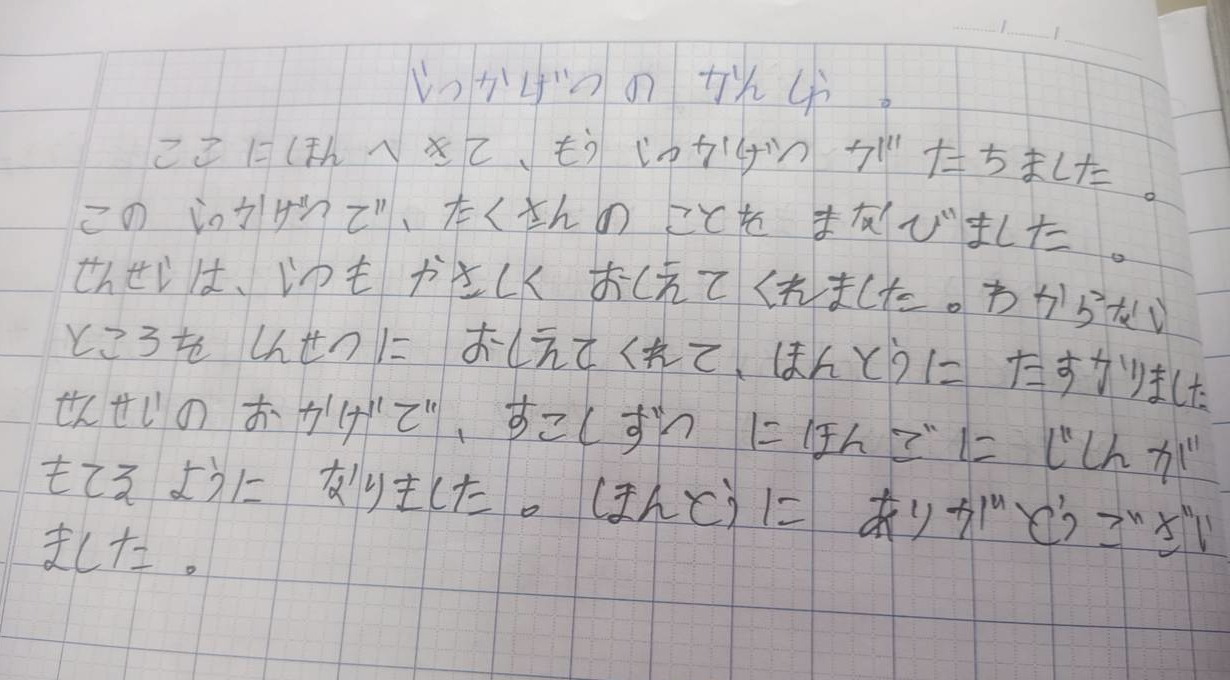 いっかげつの かんじ。
ここ にほん へ きて、もう いっかげつ が たちました。
この いっかげつで、たくさんの ことを まなびました。
せんせいは、いつも やさしく おしえて くれました。わからない
ところを しんせつに おしえてくれて、ほんとうに たすかりました
せんせいの おかげで、すこしずつ にほんごに じしんが
もてる ように なりました。ほんとうに ありがとうござい
ました。